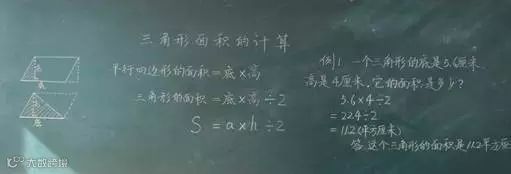 三角形面积的计算
平行四边形的面积=底×高
三角形的面积=底×高÷2
S=a×h÷2
例1 一个三角形的底是5.6厘米
高是4厘米.它的面积是多少?
5.6×4÷2
=22.4÷2
=11.2(平方厘米)
答:这个三角形的面积是11.2平方厘
大数跨境